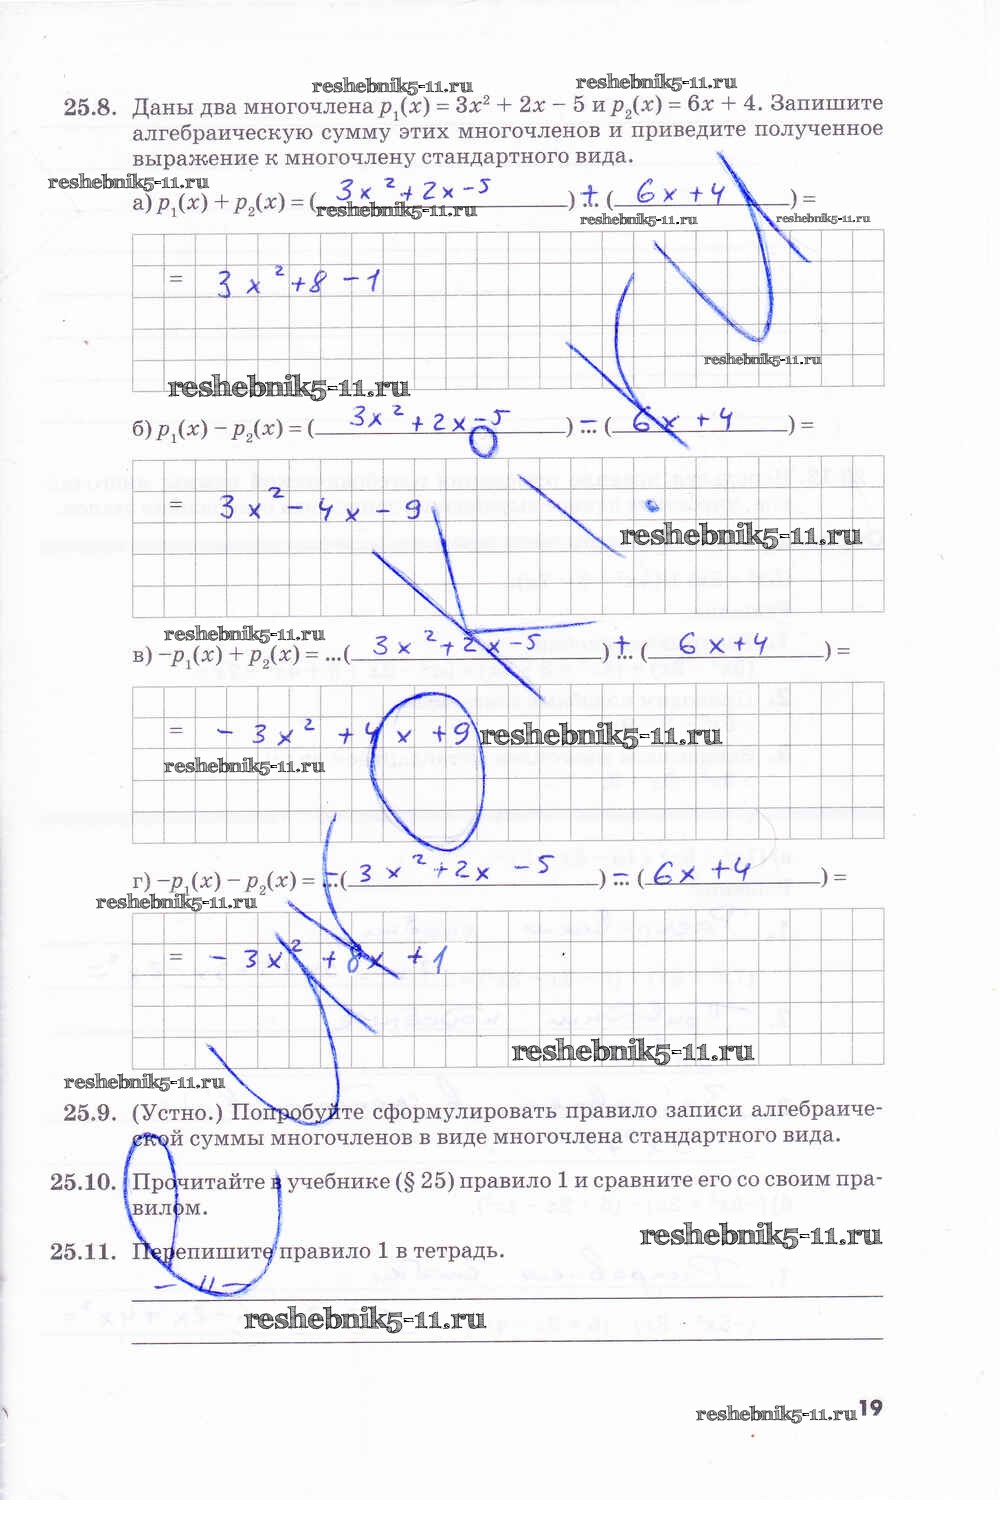 reshebnik5-11.ru reshebnik5-11.ru
25.8. Даны два многочлена p₁(x) = 3x² + 2x − 5 и p₂(x) = 6x + 4. Запишите
алгебраическую сумму этих многочленов и приведите полученное
выражение к многочлену стандартного вида.
reshebnik5-11.ru
а) p₁(x) + p₂(x) = ( 3x² + 2x − 5 ) + ( 6x + 4 ) =
reshebnik5-11.ru reshebnik5-11.ru reshebnik5-11.ru
= 3x² + 8 − 1
reshebnik5-11.ru
reshebnik5-11.ru
б) p₁(x) − p₂(x) = ( 3x² + 2x − 5 ) − ( 6x + 4 ) =
= 3x² − 4x − 9
reshebnik5-11.ru
reshebnik5-11.ru
в) −p₁(x) + p₂(x) = ...( 3x² + 2x − 5 ) + ( 6x + 4 ) =
= − 3x² + 4x + 9
reshebnik5-11.ru
reshebnik5-11.ru
г) −p₁(x) − p₂(x) = − ( 3x² + 2x − 5 ) − ( 6x + 4 ) =
reshebnik5-11.ru
= − 3x² + 8x + 1
reshebnik5-11.ru
reshebnik5-11.ru
25.9. (Устно.) Попробуйте сформулировать правило записи алгебраиче-
ской суммы многочленов в виде многочлена стандартного вида.
25.10. Прочитайте в учебнике (§ 25) правило 1 и сравните его со своим пра-
вилом.
reshebnik5-11.ru
25.11. Перепишите правило 1 в тетрадь.
− 11 −
reshebnik5-11.ru
reshebnik5-11.ru 19